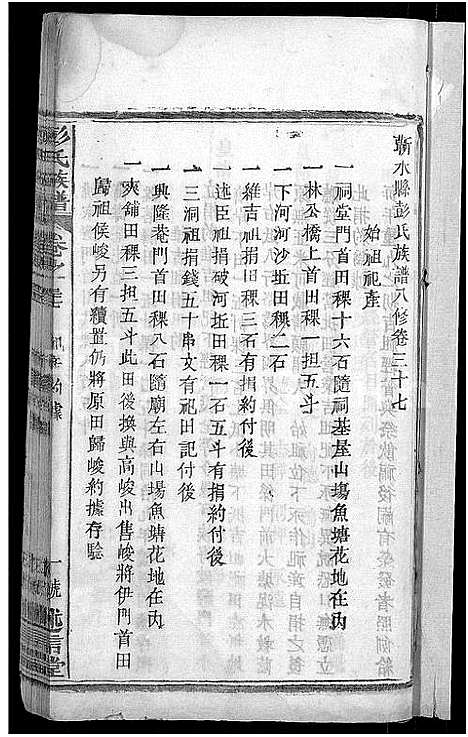 蘄水縣彭氏族譜八修卷三十七
始祖祀產
一祠堂門首田稞十六石隨祠基屋山塲魚塘花地在內
一林公橋上首田稞一担五斗
一下河河沙坵田稞二石
一維吉祖捐田稞三石有捐約付後
一進臣祖捐破河坵田稞一石五斗有捐約付後
一三洞祖捐錢五十串文有祀田記付後
一興隆菴門首田稞八石隨廟左右山場魚塘花地在內
一夾舖田稞三担五斗此田後換與高峻出售峻將伊門首田
歸祖侯峻另有續置仍將原田歸峻約據存驗
彭氏族譜
卷之三十七
一號
述信堂